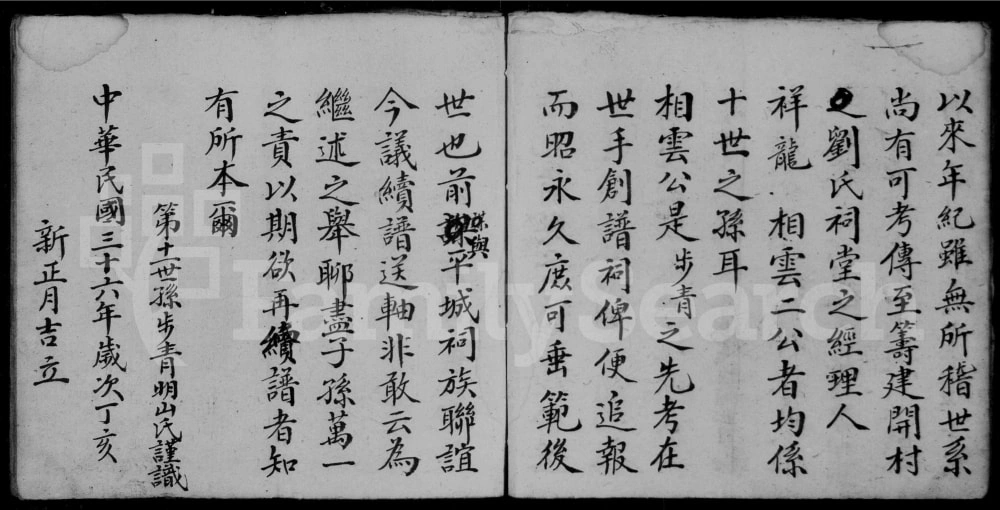 以來年紀雖無所稽世系
尚有可考傳至籌建開村
之劉氏祠堂之經理人
祥龍 相雲二公者均係
十世之孫耳
相雲公是步青之先考在
世手創譜祠俾便追報
而昭永久庶可垂範後
世也前謀與平城祠族聯誼
今議續譜送軸非敢云為
繼述之舉聊盡子孫萬一
之責以期欲再續譜者知
有所本爾
第十一世孫步青明山氏謹識
中華民國三十六年歲次丁亥
新正月吉立
FamilySearch